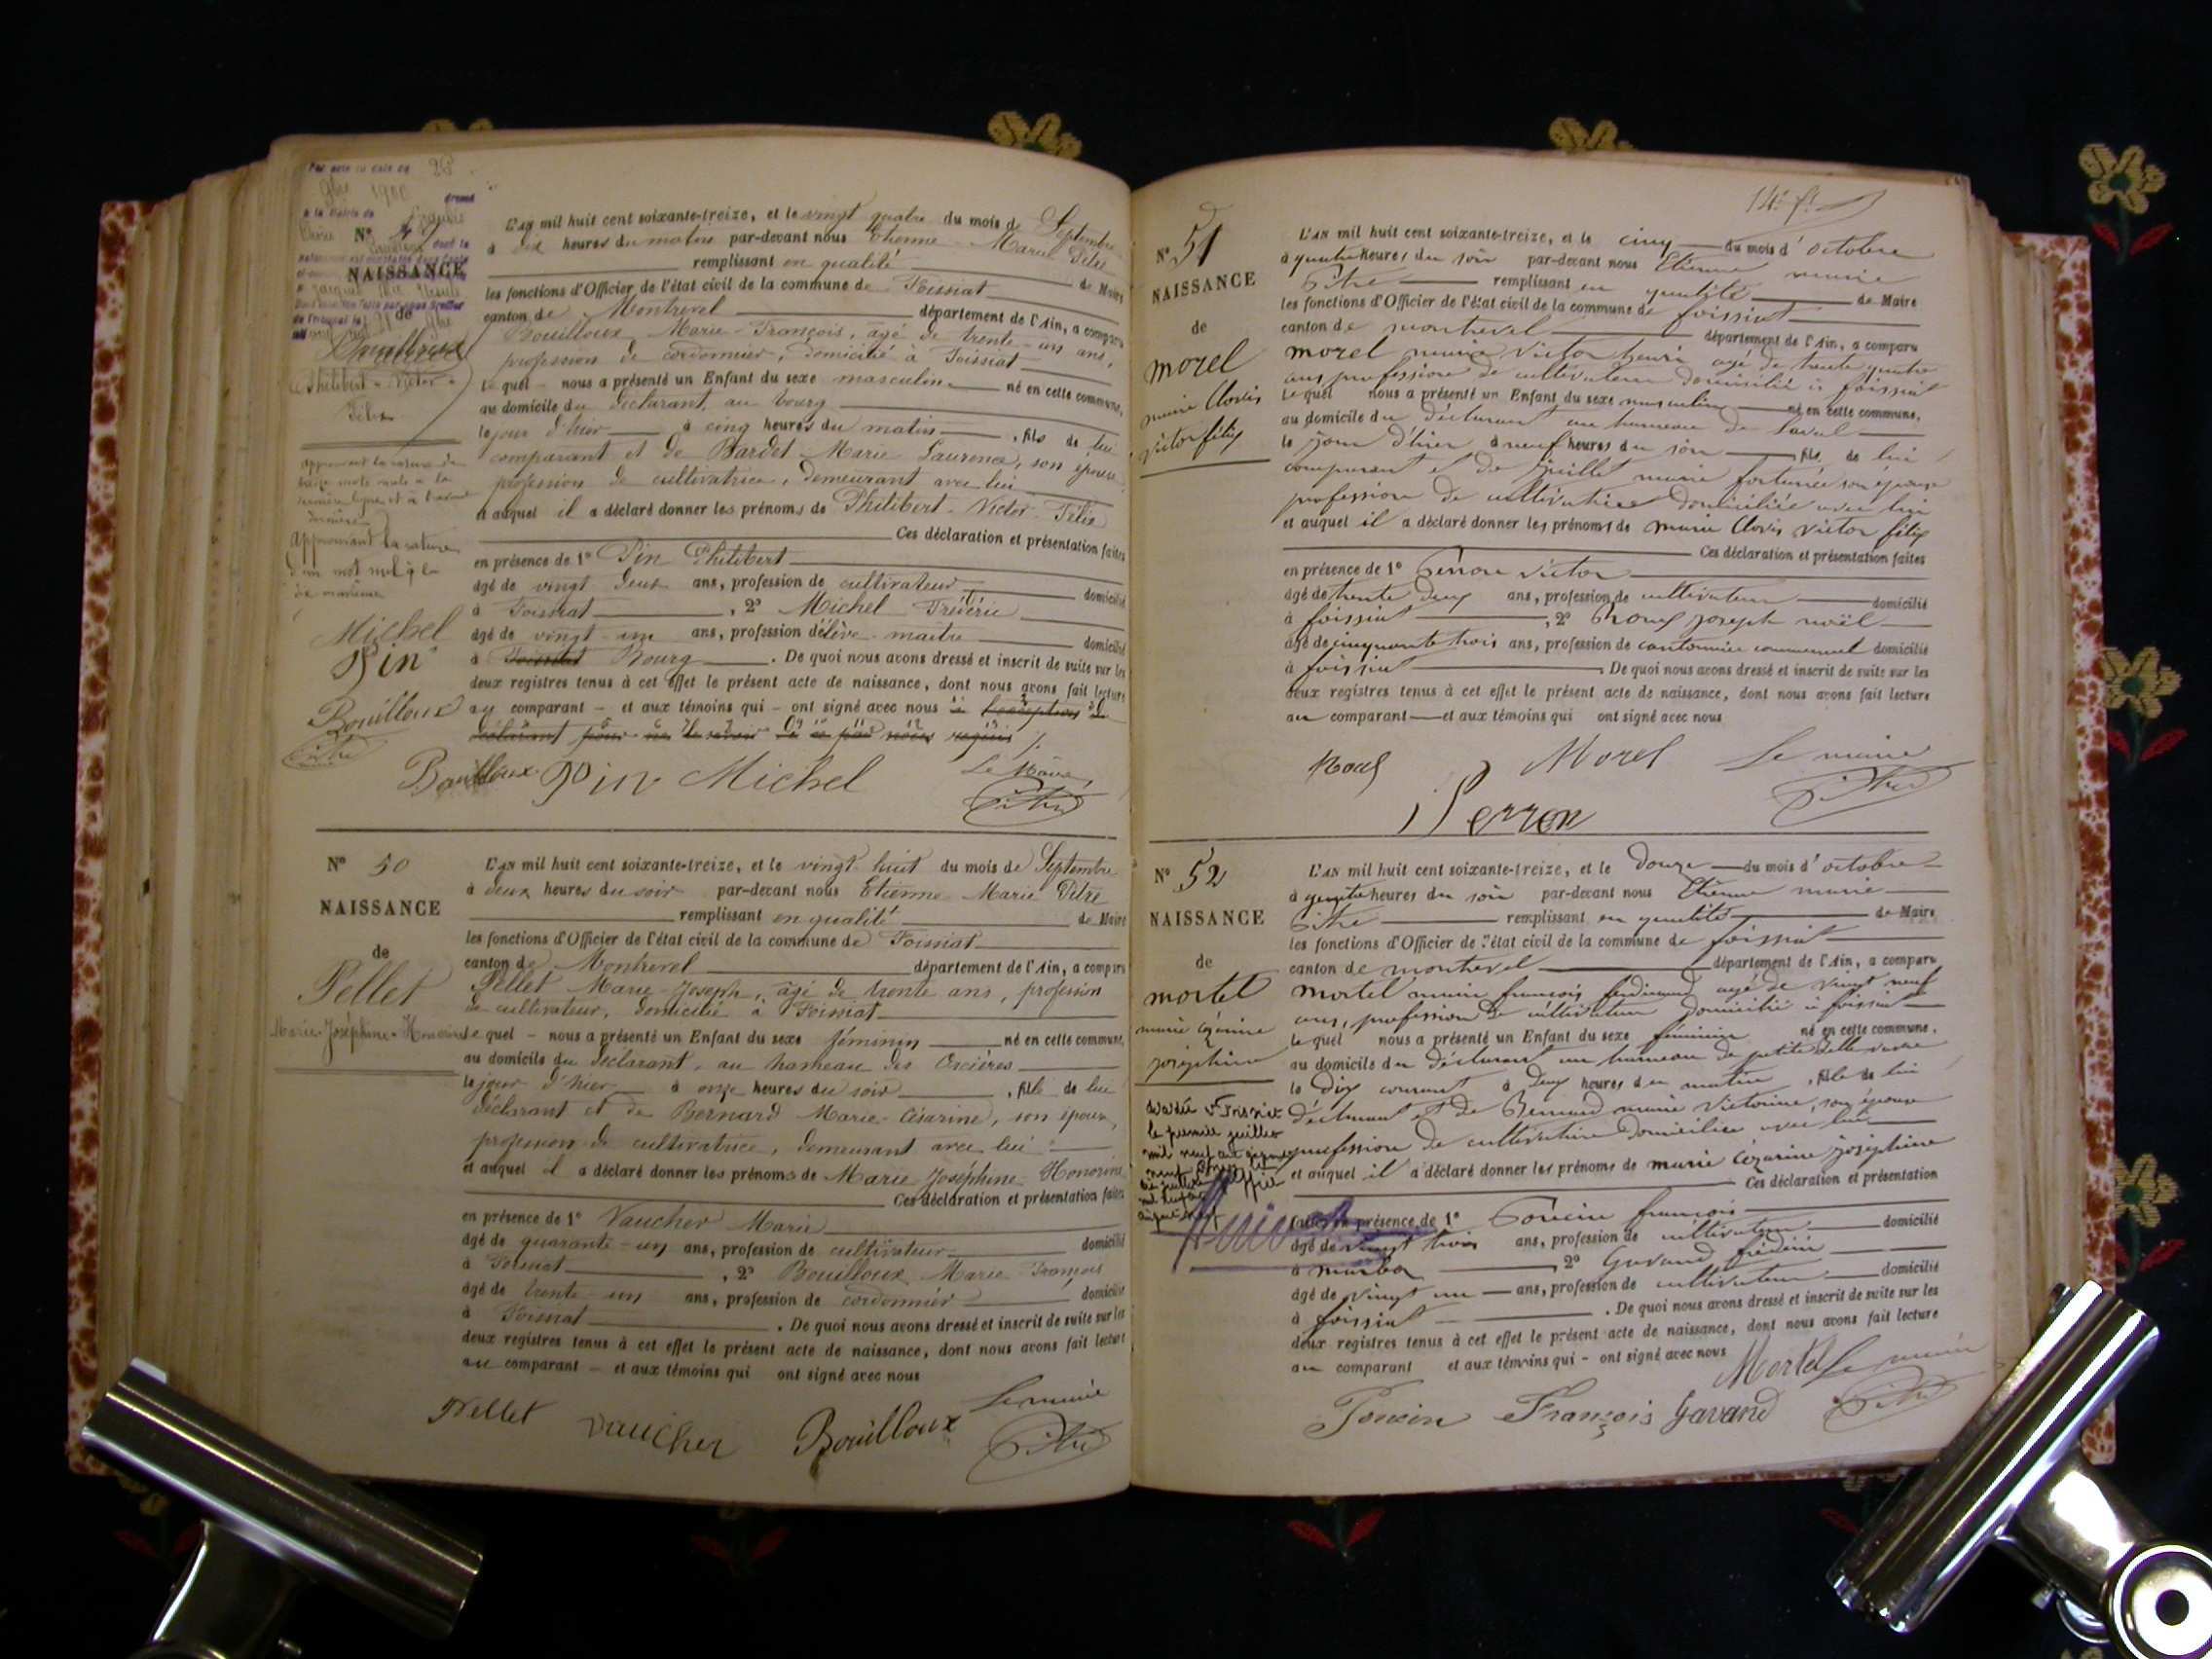 Par acte en date du 28
9bre 1900 dressé
à la Mairie de
N° 49
NAISSANCE
de
Bouilloux
Philibert - Victor -
Félix
L'AN mil huit cent soixante-treize, et le vingt quatre du mois de Septembre
à dix heures du matin par-devant nous Etienne Marie Pitre
remplissant en qualité de Maire
les fonctions d'Officier de l'état civil de la commune de Foissiat
canton de Montrevel département de l'Ain, a comparu
Bouilloux Marie-François, âgé de trente-un ans,
profession de cordonnier, domicilié à Foissiat
Lequel - nous a présenté un Enfant du sexe masculin né en cette commune,
au domicile du déclarant, au bourg
le jour d'hier à cinq heures du matin, fils de lui
comparant et de Bardet Marie Laurence, son épouse
profession de cultivatrice, demeurant avec lui
et auquel il a déclaré donner les prénoms de Philibert-Victor-Félix
Ces déclaration et présentation faites
en présence de 1° Pin Philibert
âgé de vingt deux ans, profession de cultivateur domicilié
à Foissiat, 2° Michel Frédéric
âgé de vingt-un ans, profession d'élève-maître domicilié
à Foissiat Bourg. De quoi nous avons dressé et inscrit de suite sur les
deux registres tenus à cet effet le présent acte de naissance, dont nous avons fait lecture
au comparant - et aux témoins qui - ont signé avec nous à l'exception du
déclarant pour ne le savoir de ce par nous requis
approuvant la rature de
treize mots nuls à la
dernière ligne et à l'avant
dernière
Approuvant la rature
d'un mot nul
Michel
Pin
Bouilloux
Pitre
Bouilloux Pin Michel
Le Maire,
Pitre
N° 50
NAISSANCE
de
Pellet
Marie-Joséphine-Honorine
L'AN mil huit cent soixante-treize, et le vingt-huit du mois de Septembre
à deux heures du soir par-devant nous Etienne Marie Pitre
remplissant en qualité de Maire
les fonctions d'Officier de l'état civil de la commune de Foissiat
canton de Montrevel département de l'Ain, a comparu
Pellet Marie-Joseph, âgé de trente ans, profession
de cultivateur, domicilié à Foissiat
Lequel - nous a présenté un Enfant du sexe féminin né en cette commune,
au domicile du déclarant, au hameau des Orcières
le jour d'hier à onze heures du soir, fille de lui
déclarant et de Bernard Marie-Césarine, son épouse,
profession de cultivatrice, demeurant avec lui
et auquel il a déclaré donner les prénoms de Marie Joséphine Honorine
Ces déclaration et présentation faites
en présence de 1° Vaucher Marie
âgé de quarante-un ans, profession de cultivateur domicilié
à Foissiat, 2° Bouilloux Marie François
âgé de trente-un ans, profession de cordonnier domicilié
à Foissiat. De quoi nous avons dressé et inscrit de suite sur les
deux registres tenus à cet effet le présent acte de naissance, dont nous avons fait lecture
au comparant - et aux témoins qui ont signé avec nous
Pellet Vaucher Bouilloux
Le maire
Pitre
N° 51
NAISSANCE
de
morel
marie Clovis
victor félix
L'AN mil huit cent soixante-treize, et le cinq du mois d'octobre
à quatre heures du soir par-devant nous Etienne marie
Pitre remplissant en qualité de Maire
les fonctions d'Officier de l'état civil de la commune de foissiat
canton de montrevel département de l'Ain, a comparu
morel marie victor henri agé de trente quatre
ans profession de cultivateur domicilié à foissiat
Lequel nous a présenté un Enfant du sexe masculin né en cette commune,
au domicile du déclarant au hameau de Laval
le jour d'hier à neuf heures du soir, fils de lui
comparant et de Guillet marie fortunée son épouse
profession de cultivatrice domiciliée avec lui
et auquel il a déclaré donner les prénoms de marie Clovis victor félix
Ces déclaration et présentation faites
en présence de 1° Perron victor
âgé de trente deux ans, profession de cultivateur domicilié
à foissiat, 2° joseph noël
âgé de cinquante trois ans, profession de cantonnier communal domicilié
à foissiat. De quoi nous avons dressé et inscrit de suite sur les
deux registres tenus à cet effet le présent acte de naissance, dont nous avons fait lecture
au comparant et aux témoins qui ont signé avec nous
Morel Le maire
Perron Pitre
N° 52
NAISSANCE
de
mortel
marie Cézarine
joséphine
L'AN mil huit cent soixante-treize, et le douze du mois d'octobre
à quatre heures du soir par-devant nous Etienne marie
Pitre remplissant en qualité de Maire
les fonctions d'Officier de l'état civil de la commune de foissiat
canton de montrevel département de l'Ain, a comparu
mortel marie françois ferdinand agé de vingt neuf
ans, profession de cultivateur domicilié à foissiat
Lequel nous a présenté un Enfant du sexe féminin né en cette commune,
au domicile du déclarant au hameau de petite
le dix courant à deux heures du matin, fille de lui
déclarant et de Bernard marie Victorine, son épouse
profession de cultivatrice domiciliée avec lui
et auquel il a déclaré donner les prénoms de marie Cézarine joséphine
Ces déclaration et présentation
faites en présence de 1° Poncin françois
âgé de vingt trois ans, profession de cultivateur domicilié
à marboz, 2° Gavand frédéric
âgé de vingt un ans, profession de cultivateur domicilié
à foissiat. De quoi nous avons dressé et inscrit de suite sur les
deux registres tenus à cet effet le présent acte de naissance, dont nous avons fait lecture
au comparant et aux témoins qui - ont signé avec nous
Mortel Le maire
Poncin François Gavand Pitre
décédée à Foissiat
le premier juillet
mil neuf cent cinquante
neuf